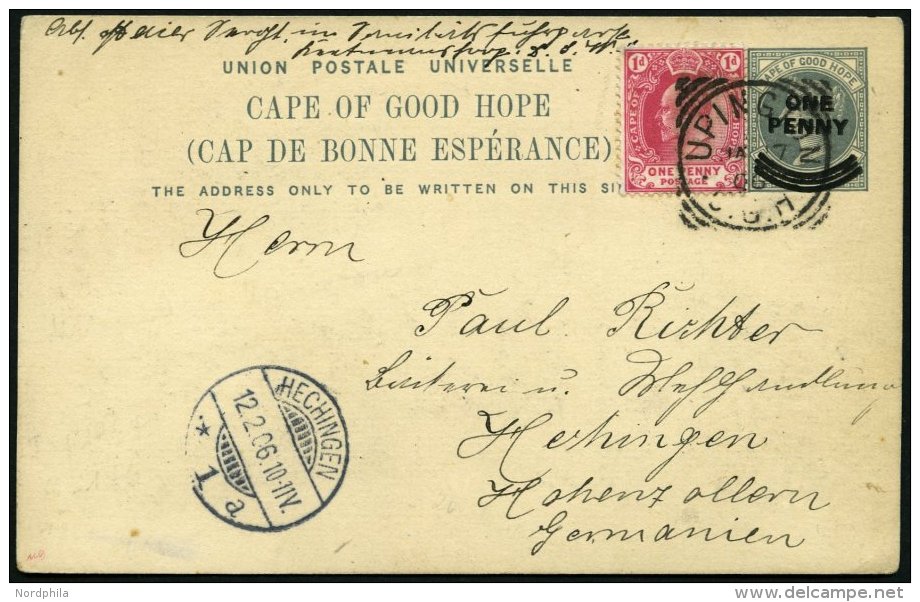 Abs. Meier Sergt. im Sanitätsfuhrpark
UNION POSTALE UNIVERSELLE
CAPE OF GOOD HOPE
(CAP DE BONNE ESPÉRANCE)
THE ADDRESS ONLY TO BE WRITTEN ON THIS SI
1d 1d
CAPE OF HOPE
ONE PENNY
POSTAGE
CAPE OF GOOD HOPE
ONE
PENNY
UPING
JA 7
06
C.G.H
Herrn
Paul Richter
u. Mehlhandlung
Hechingen
Hohenzollern
Germanien
HECHINGEN
12.2.06.10-11V.
* 1 a
Nordphila
delcampe.net